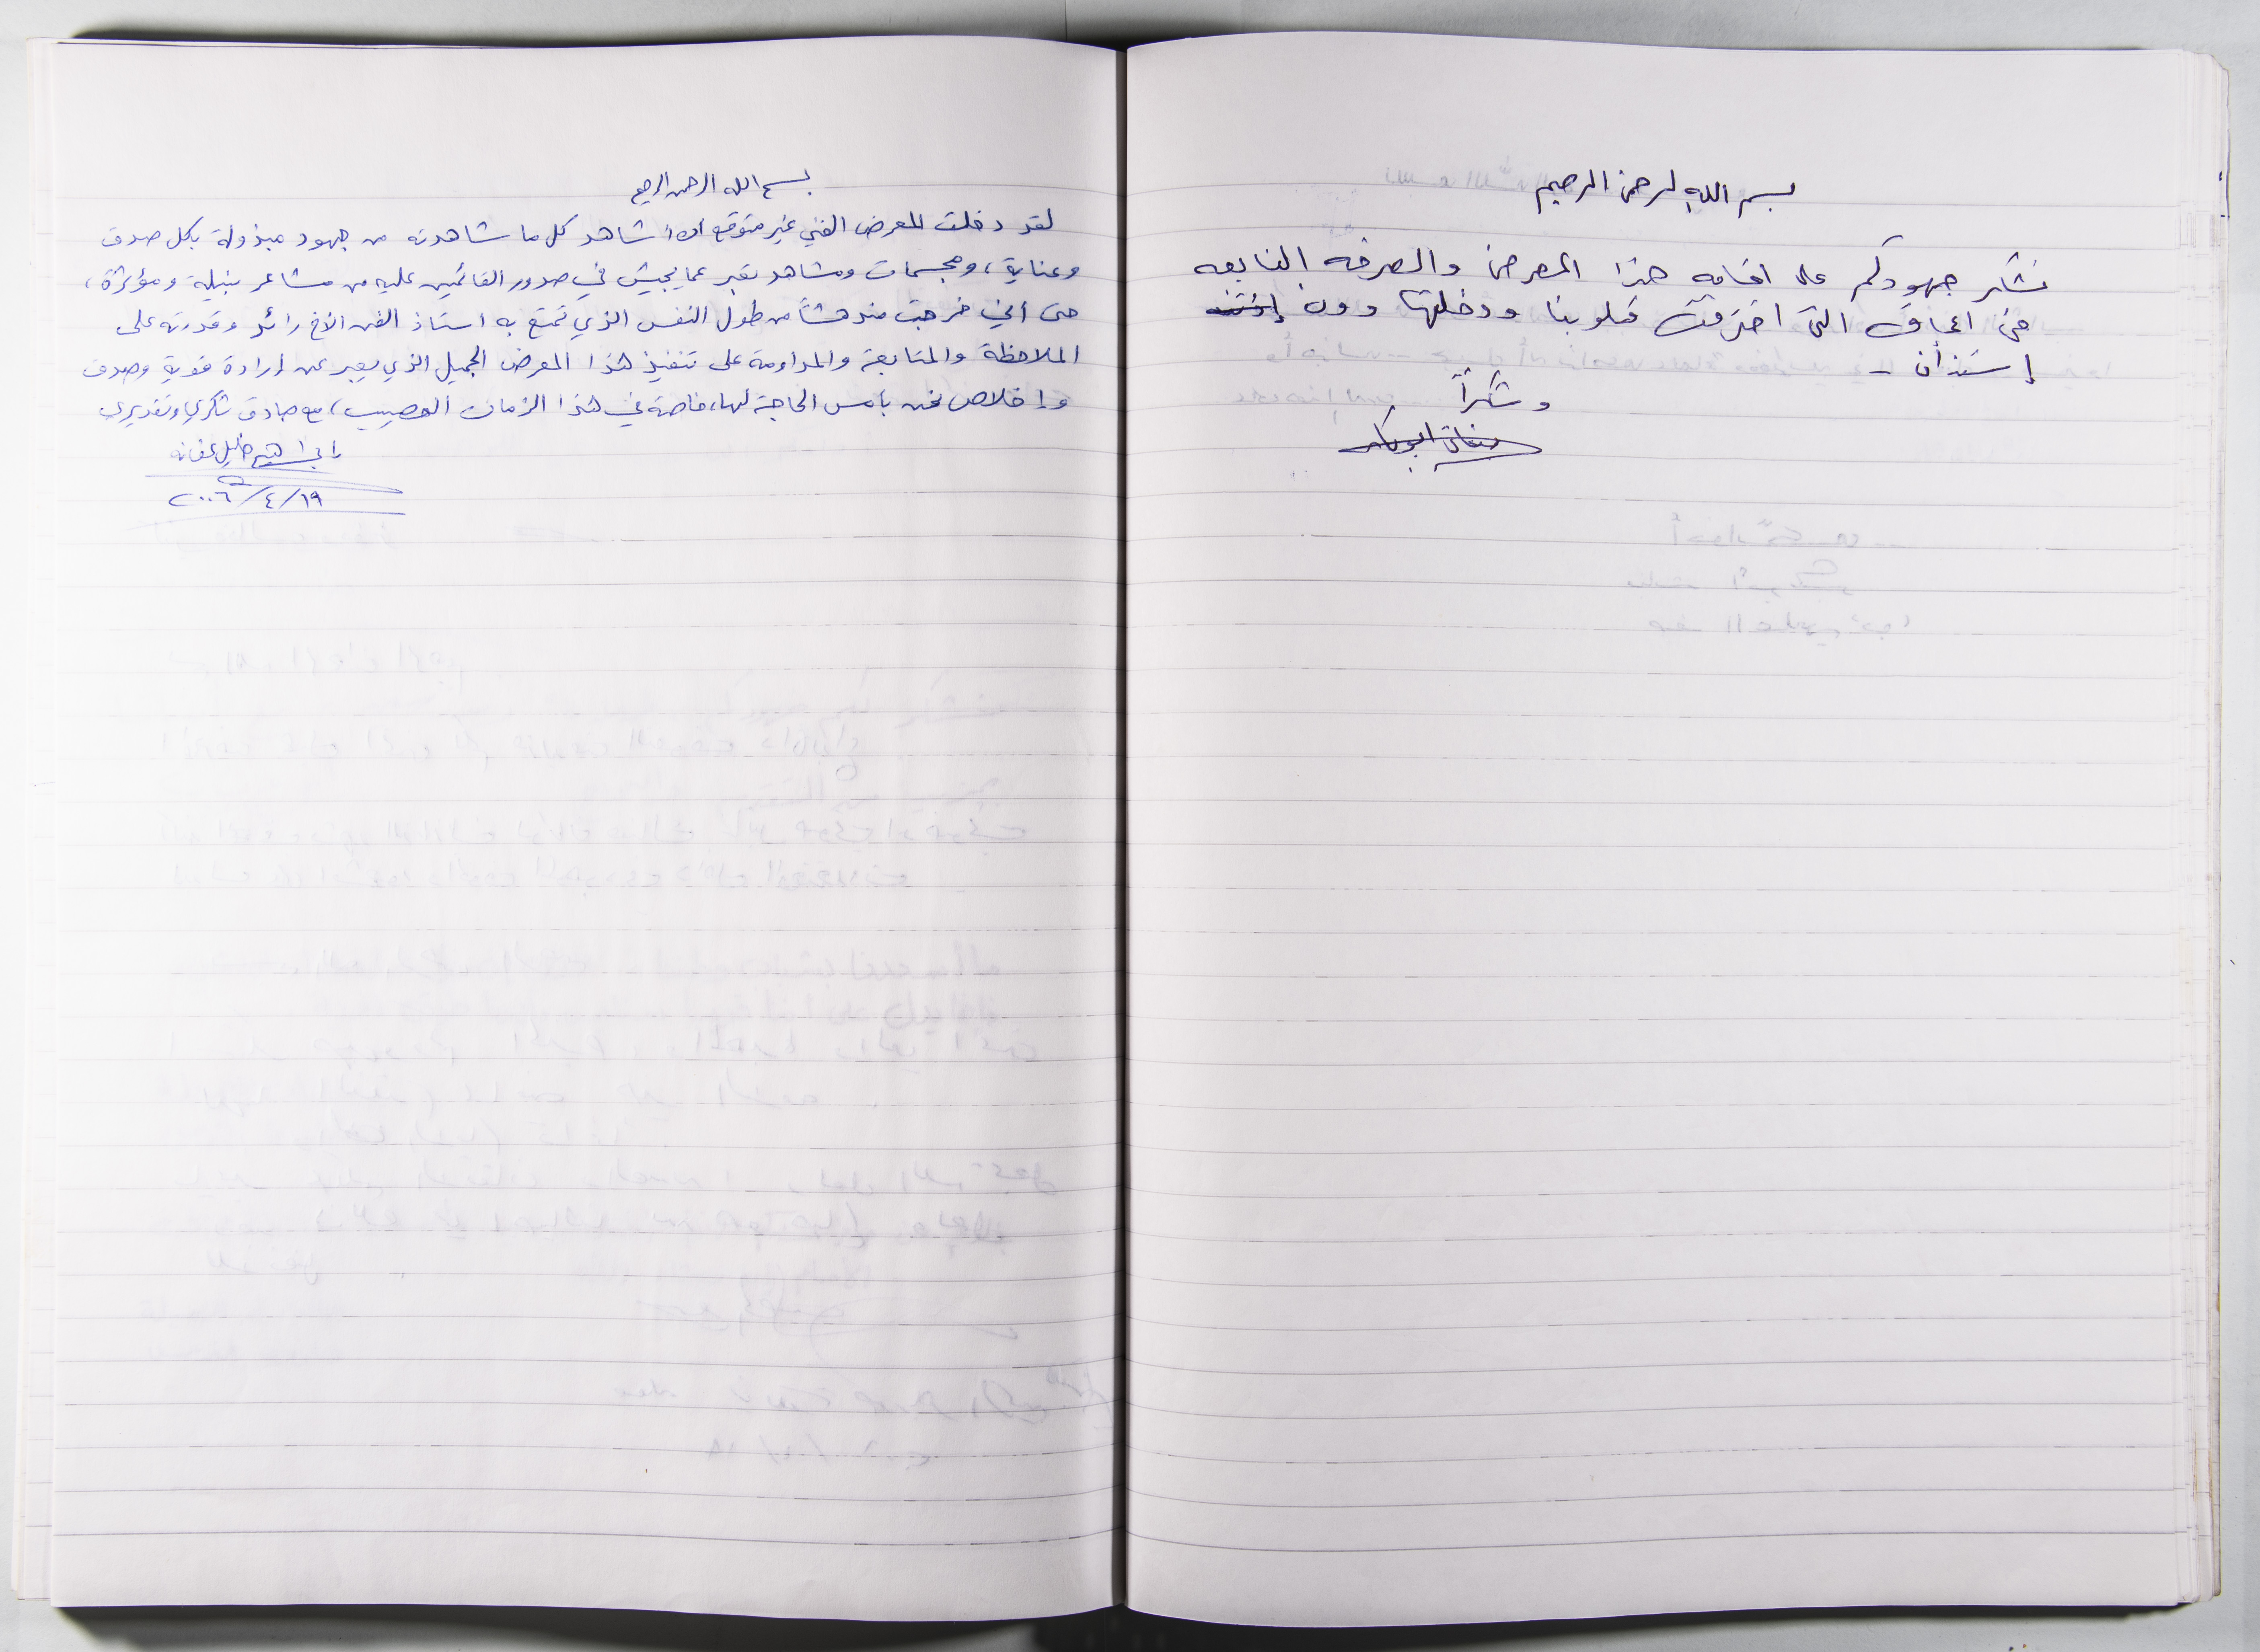 بسم الله الرحمن الرحيم
نشكر جهودكم على اقامه هذا المعرض والصرخه النابعه
من اعماق التي اخترقت قلوبنا ودخلتها دون
إستئذان -
وشكراً
بسم الله الرحمن الرحيم
لقد دخلت المعرض الفني غير متوقع أن أشاهد كل ما شاهدته من جهود مبذولة بكل صدق
وعناية، ومجسمات ومشاهد تعبر عما يجيش في صدور القائمين عليه من مشاعر نبيلة ومؤثرة،
حتى أني خرجت مندهشاً من طول النفس الذي تمتع به استاذ الفن الأخ رائد وقدرته على
الملاحظة والمتابعة والمداومة على تنفيذ هذا المعرض الجميل الذي يعبر عن إرادة قوية وصدق
وإخلاص نحن بأمس الحاجة لها، خاصة في هذا الزمان العصيب، مع صادق شكري وتقديري
خليل عفانه
١٩/٤/٢٠٠٦